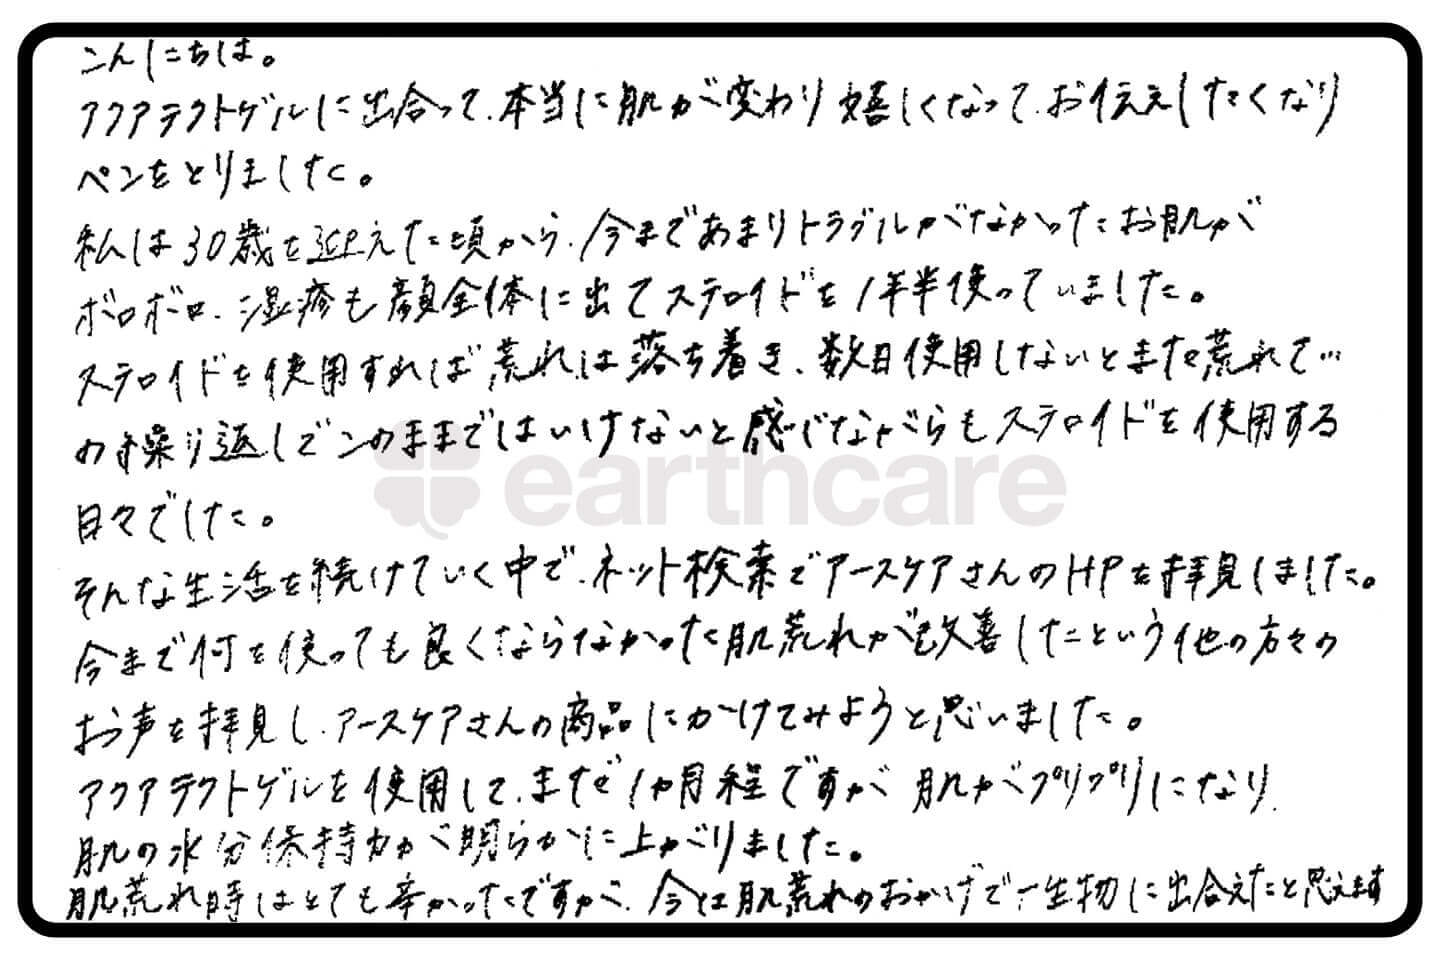 こんにちは。
アクアテクトゲルに出合って、本当に肌が変わり嬉しくなって、お伝えしたくなり
ペンをとりました。
私は30歳を迎えた頃から、今まであまりトラブルがなかったお肌が
ボロボロ、湿疹も顔全体に出てステロイドを1年半使っていました。
ステロイドを使用すれば荒れは落ち着き、数日使用しないとまた荒れて…
の繰り返しでこのままではいけないと感じながらもステロイドを使用する
日々でした。
earthcare
そんな生活を続けていく中で、ネット検索でアースケアさんのHPを拝見しました。
今まで何を使っても良くならなかった肌荒れが改善したという他の方々の
お声を拝見し、アースケアさんの商品にかけてみようと思いました。
アクアテクトゲルを使用して、まだ1ヵ月程ですが 肌がプリプリになり、
肌の水分保持力が明らかに上がりました。
肌荒れ時はとても辛かったですが、今は肌荒れのおかげで一生物に出合えたと思えます